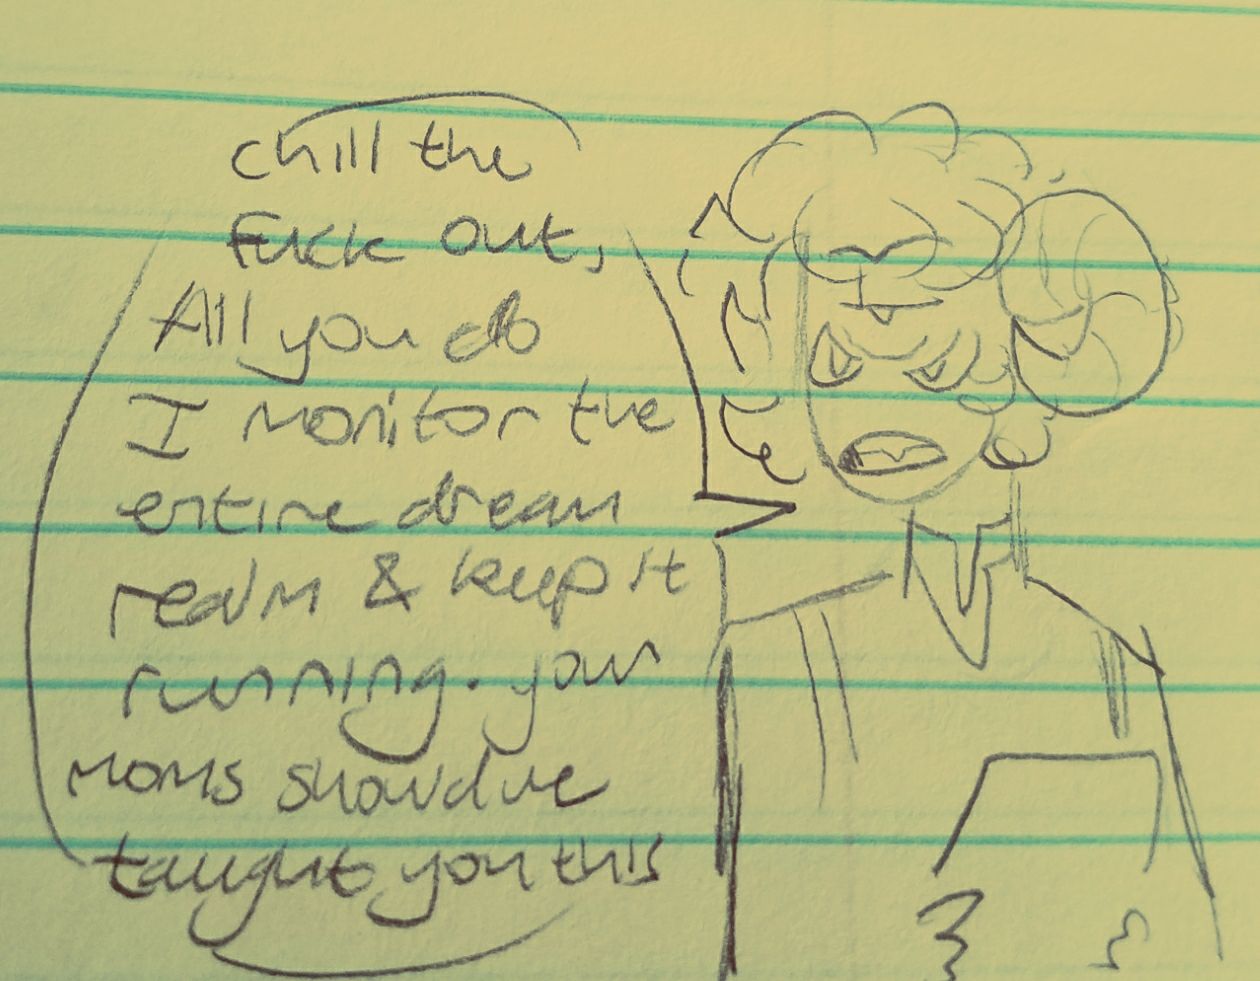 chill the
fuck out,
All you do
I monitor the
entire dream
realm & keep it
running. your
moms should've
taught you this